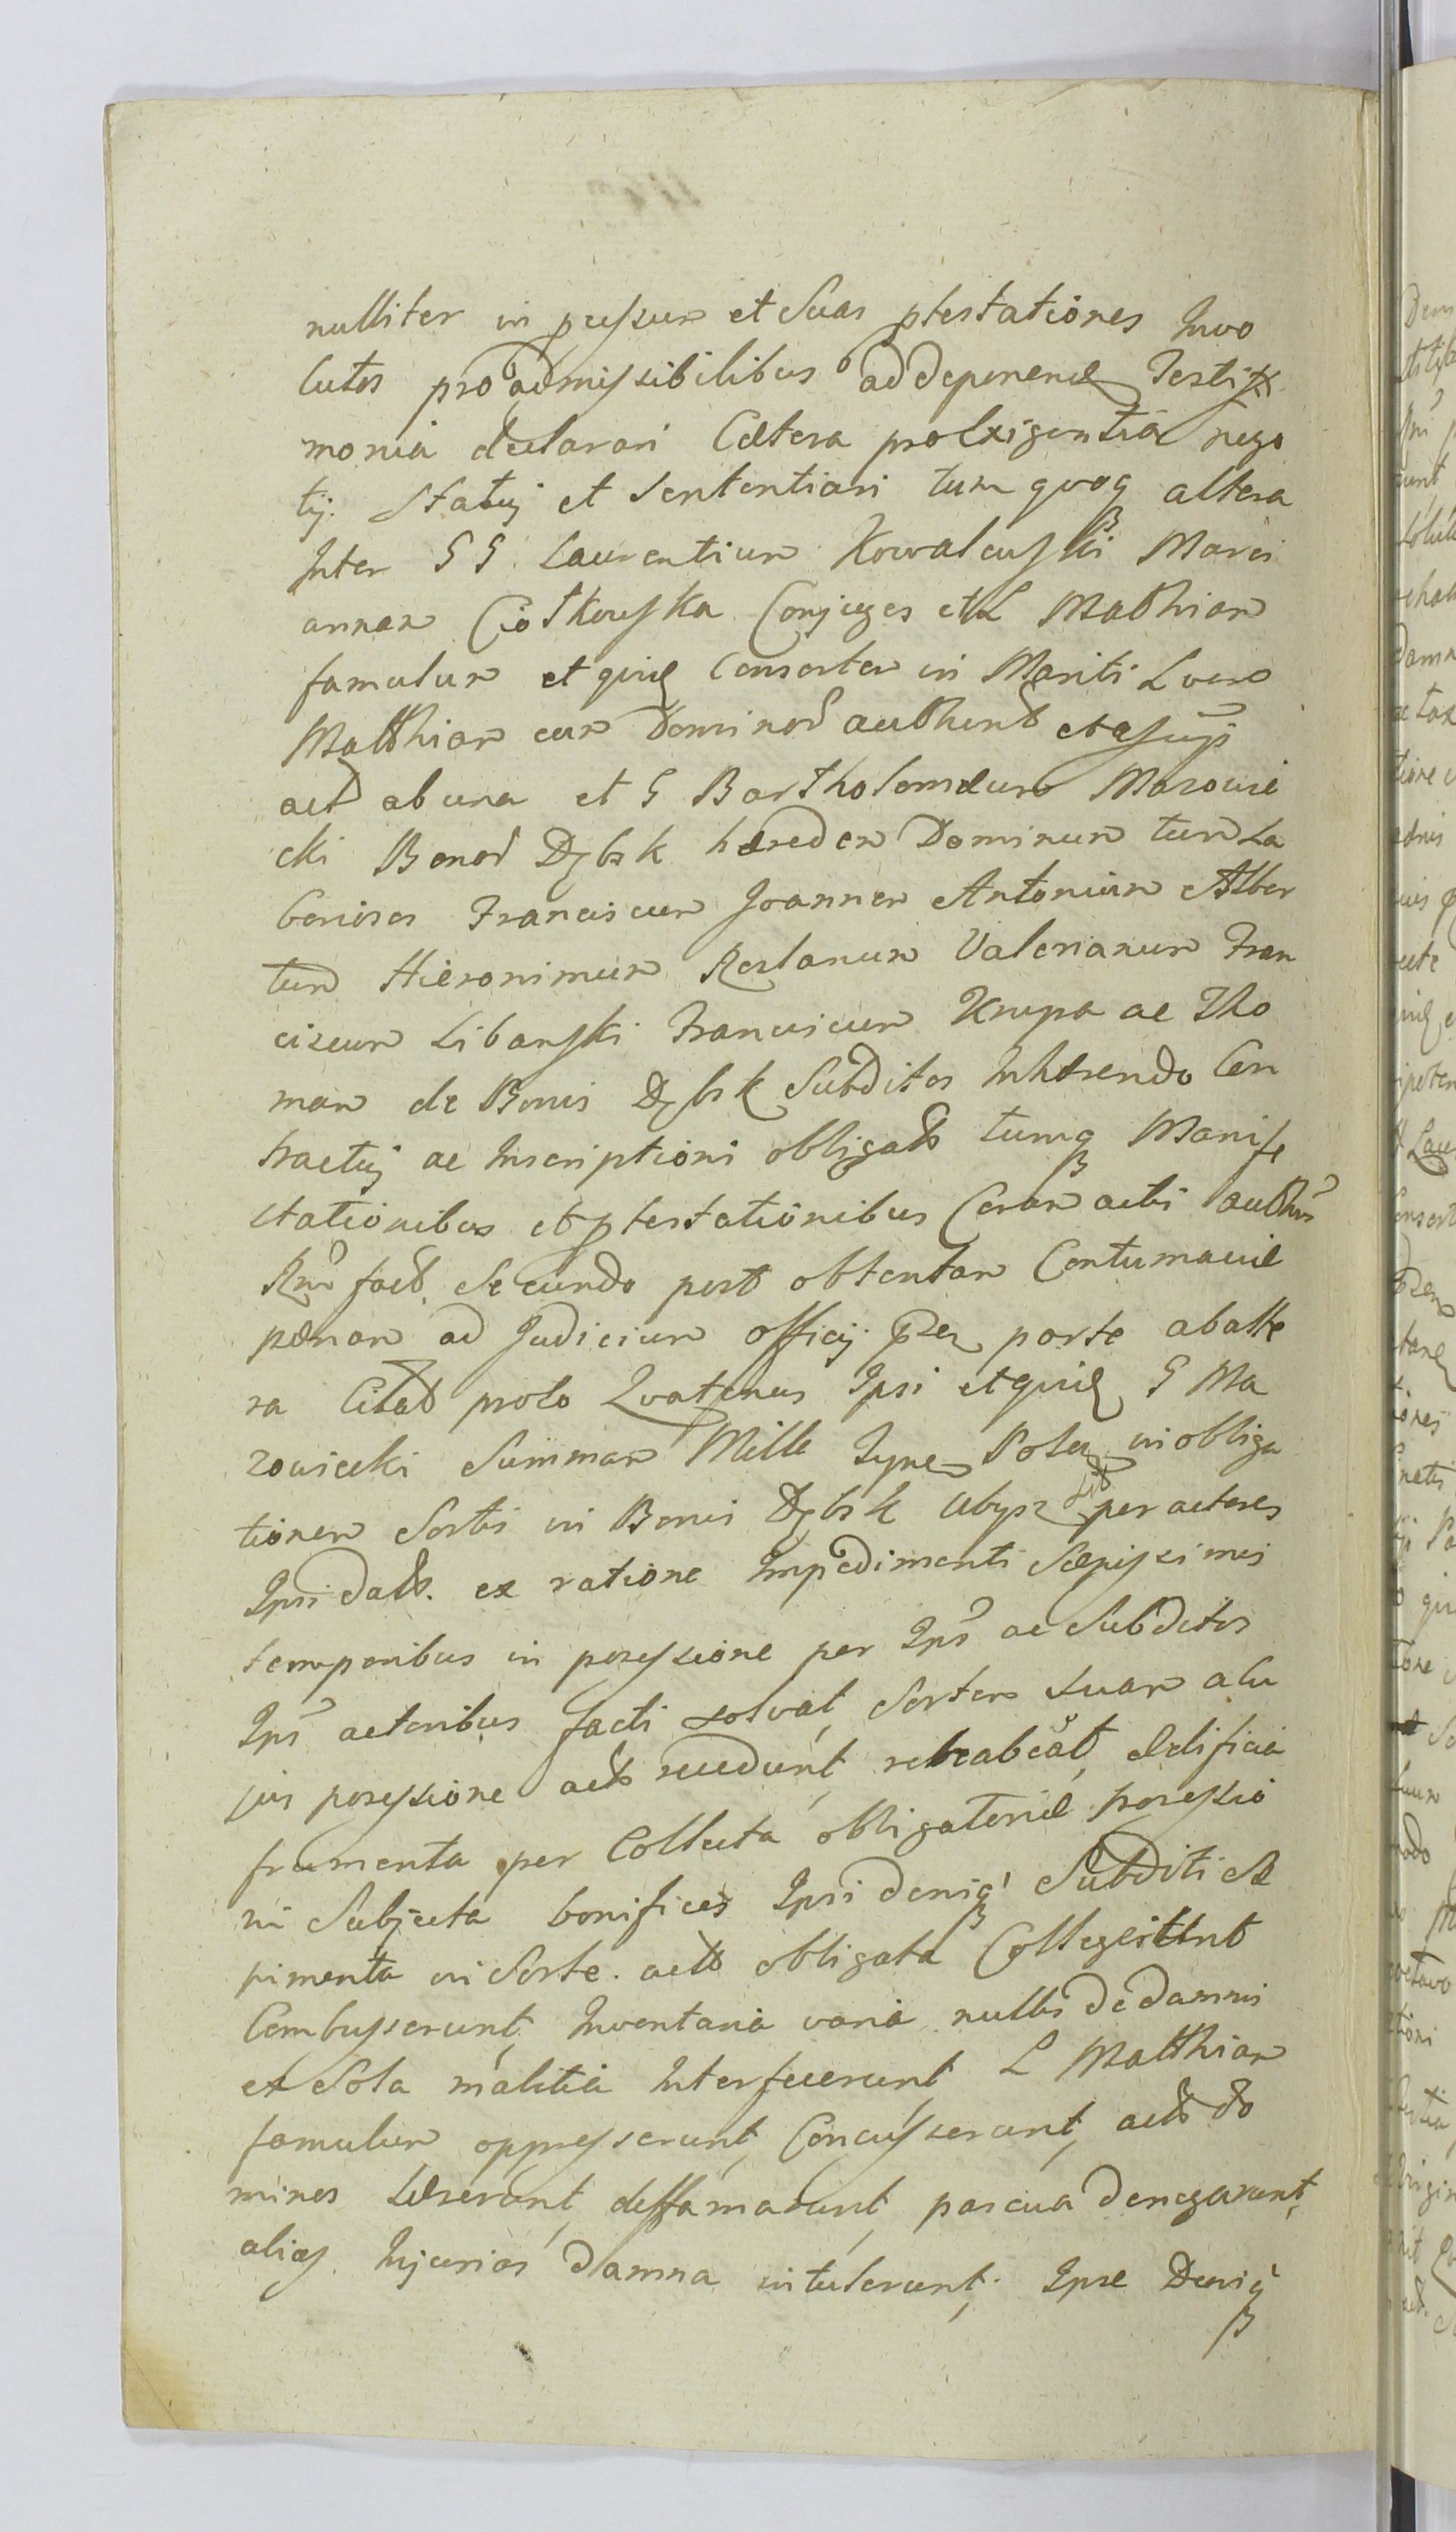 nulliter in pressum et Suas ptestationes Invo
lutos pro admissibilibus ad deponend Testi
monia declarari Cætera pro Exigentia nego
tij. Statuj et Sententiari tum quoq altera
Inter G G. Laurentium Kowalewski Mari
annam Ciotkowska Conjuges et L Matthiam
famulum et quid Consortem in Mariti L vero
Matthiam cum Dominor authent et assijs
act ab una et G Bartholomæum Mazowie
cki Bonor Dębsk hæredem Dominum tum La
boriosos Franciscum Joannem Antonium Alber
tum Hieronimum Valerianum Fran
ciscum Libanski Franciscum Krupa ac Tho
mam de Bonis Dębsk Subditos Inhærendo Con
tractuj ac Inscriptioni obligat tumq Manife
stationibus et ptestationibus Coram actis authen
fact Secundo post obtentam Contumaciæ
pænam ad Judicium officij parte ab alte
ra Citat prolo Quatenus Ipsi et quid G Ma
zowiecki Summam Mille Tynf Polon in obliga
tionem Sortis in Bonis Dębsk per actores
Ipsi dat. ex ratione Impedimenti Sæpissimis
temporibus in possessione per Ips ac Subditos
Ips actoribus facti solvat Sortem suam a Cu
jus possessione act recedunt rehabeat, ædificia
frumenta per Collecta obligatoriæ possessio
ni Subjecta bonificet Ipsi deniq Subditi Se
pimenta in Sorte. act obligata Collegerunt
Combusserunt, Inventaria varia nullis de damnis
ex Sola malitia Interfecerunt, L Matthiam
famulum oppresserunt, Concusserunt, act do
minos Læserunt, deffamarunt, pascua denegarunt,
alias Injurias damna intulerunt. Ipse Deniq